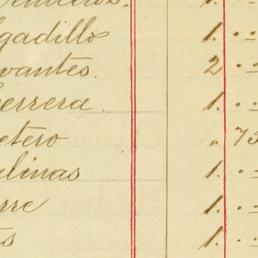 gadillo 1. "
vantes. 2 "
errera. 1. "
etero " 75
linas 1. "
rre 1. "
s 1. "